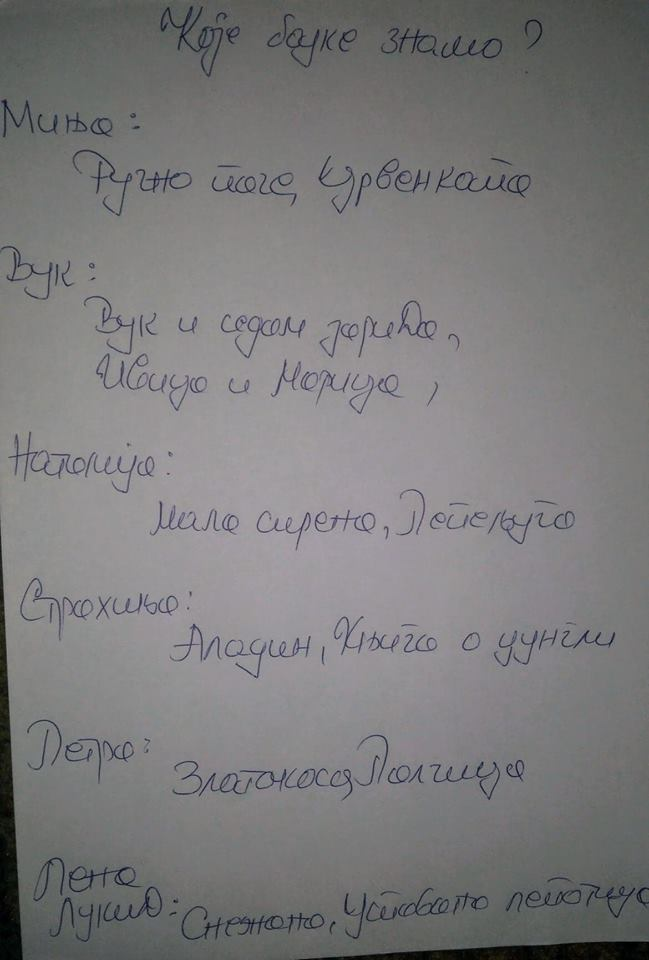 Које бајке знамо?
Миња:
Ружно паче, Црвенкапа
Вук:
Вук и седам јарића,
Ивица и Марица,
Наталија:
Мала сирена, Пепељуга
Страхиња:
Аладин, Књига о џунгли
Петра:
Златокоса, Палчица
Лена
Лукић: Снежана, Успавана лепотица